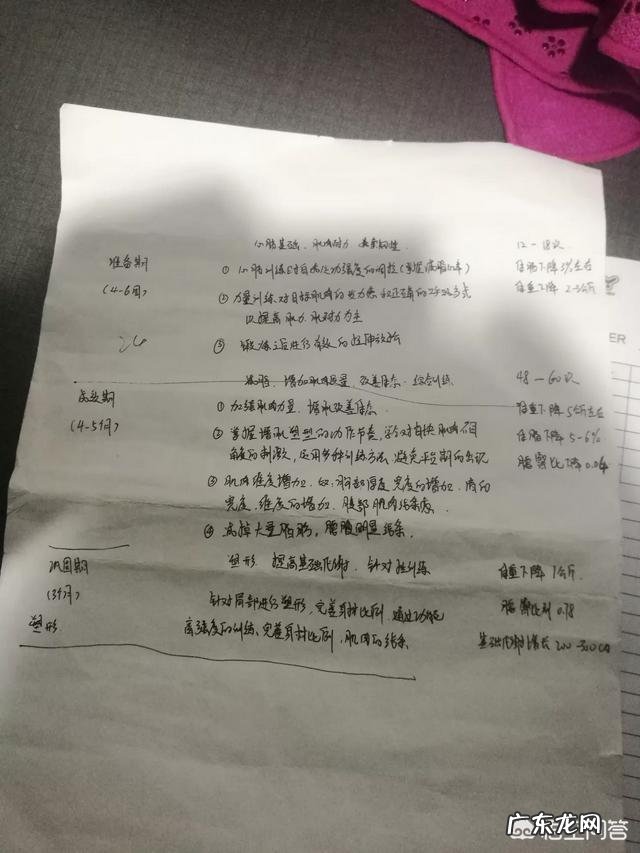 心肺基础、肌肉耐力、柔韧性 12-18次
准备期 ① 心肺训练时自身运动强度的调控(掌握心率) 体脂下降3%左右
(4-6周) ② 力量训练对目标肌肉的发力感和正确的方式 体重下降2-3公斤
以提高肌力、肌耐力为主
③ 锻炼后进行有效的拉伸放松
减脂、增加肌肉质量、改善体态、综合训练 48-60次
(4-5个月) ① 加强肌肉力量、增肌改善体态 体重下降5公斤左右
② 掌握增肌塑型的动作节奏,针对自身肌肉 体脂下降5-6%
角度的刺激,运用多种训练方法,避免平台期的出现 腰臀比下降0.04
③ 肌肉维度增加2,如:胸部厚度、宽度的增加,肩的
宽度、维度的增加、腹部肌肉线条感。
④ 减掉大量脂肪,腰腹明显线条
巩固期 塑形 提高基础代谢、针对性训练 体重下降1公斤.
(3个月) 针对局部进行塑形,完善身材比例,通过功能 腰臀比例0.78
塑形 高强度的训练,完善身材比例、肌肉的线条 基础代谢增长200-300
ER
广东龙网
悟空问答